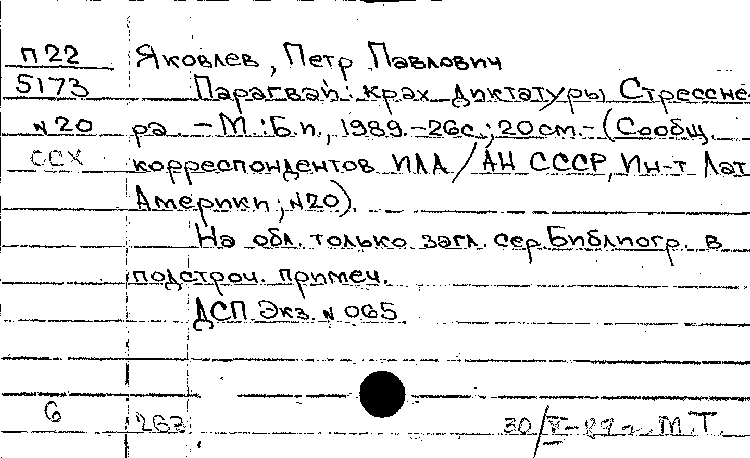 п22 Яковлев, Петр Павлович
5173 Парагвай: крах диктатуры Стрессне-
N20 ра. – М.: Б.и., 1989. – 26с.; 20см. – (Сообщ.
ССХ корреспондентов ИЛА / АН СССР, Ин-т Лат.
Америки; N20).
На обл. только загл. сер. Библиогр. в
подстроч. примеч.
ДСП Экз. N 065.
6 263 30/V-89 г. М.Т.